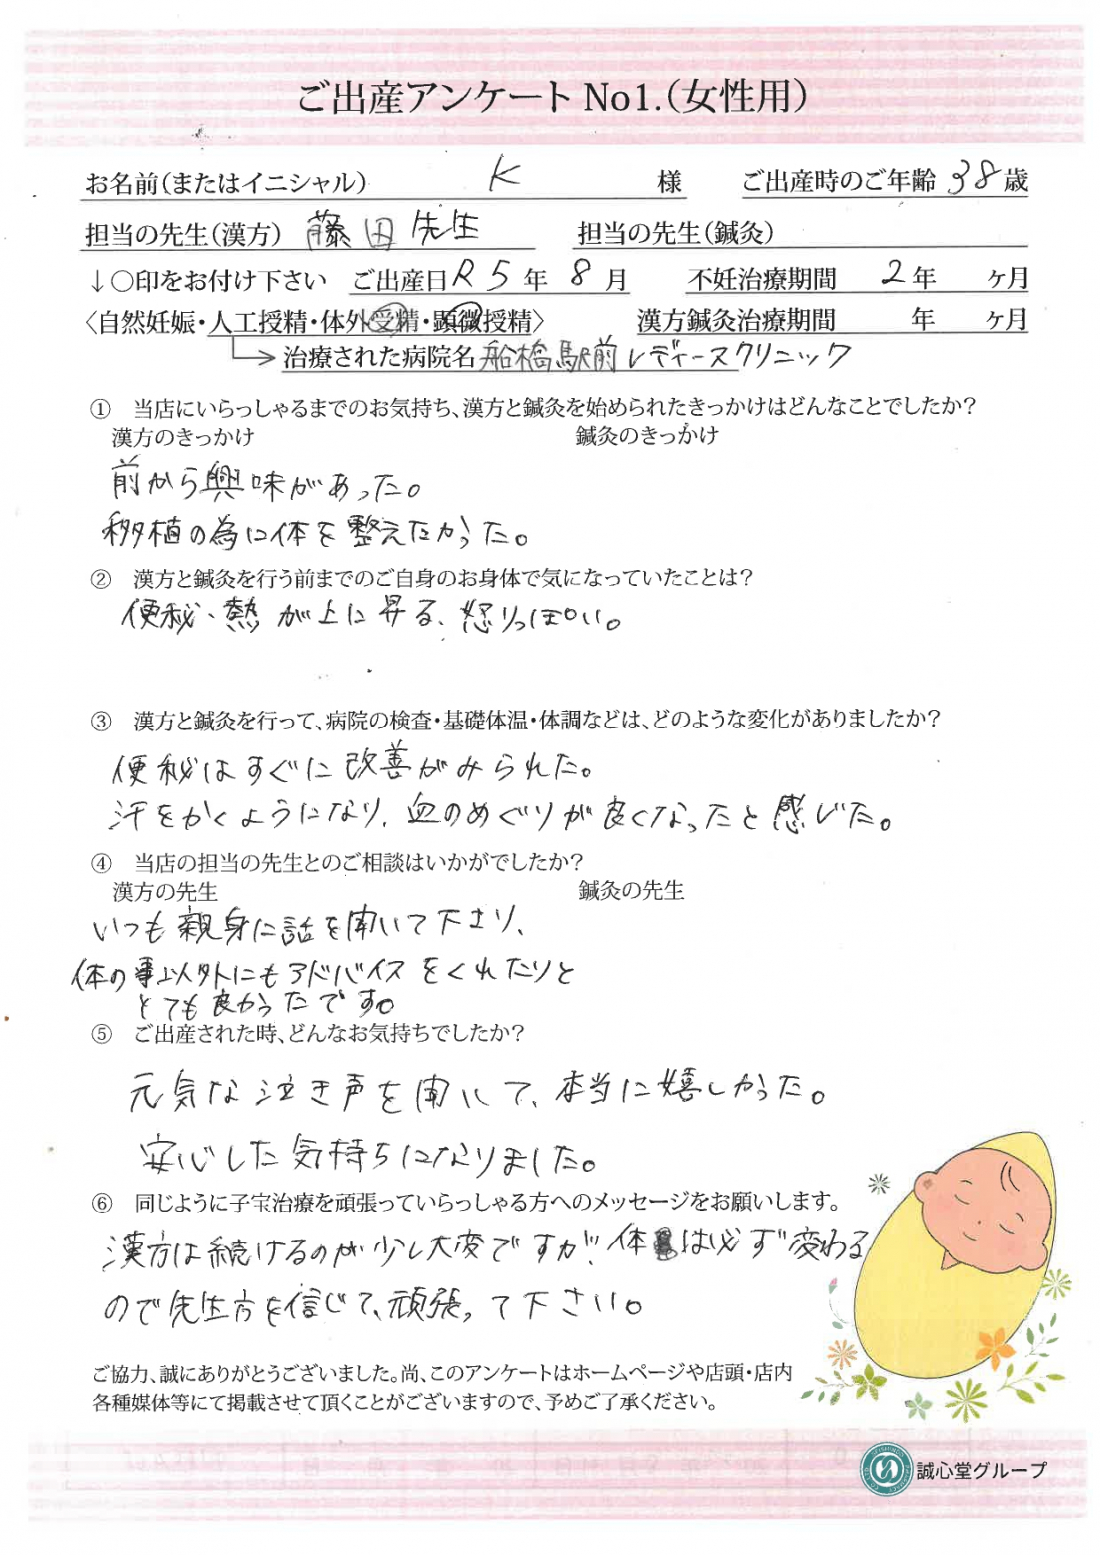 ご出産アンケート No1.(女性用)
お名前(またはイニシャル) K 様 ご出産時のご年齢 38歳
担当の先生(漢方) 藤田先生 担当の先生(鍼灸)
↓○印をお付け下さい ご出産日 R5年 8月 不妊治療期間 2年 ヶ月
〈自然妊娠・人工授精・体外受精・顕微授精〉 漢方鍼灸治療期間 年 ヶ月
治療された病院名 船橋駅前レディースクリニック
① 当店にいらっしゃるまでのお気持ち、漢方と鍼灸を始められたきっかけはどんなことでしたか?
漢方のきっかけ 鍼灸のきっかけ
前から興味があった。
移植の為に体を整えたかった。
② 漢方と鍼灸を行う前までのご自身のお身体で気になっていたことは?
便秘、熱が上に昇る、怒りっぽい。
③ 漢方と鍼灸を行って、病院の検査・基礎体温・体調などは、どのような変化がありましたか?
便秘はすぐに改善がみられた。
汗をかくようになり、血のめぐりが良くなったと感じた。
④ 当店の担当の先生とのご相談はいかがでしたか?
漢方の先生 鍼灸の先生
いつも親身に話を聞いて下さり、
体の事以外にもアドバイスをくれたりと
とても良かったです。
⑤ ご出産された時、どんなお気持ちでしたか?
元気な泣き声を聞いて、本当に嬉しかった。
安心した気持ちになりました。
⑥ 同じように子宝治療を頑張っていらっしゃる方へのメッセージをお願いします。
漢方は続けるのが少し大変ですが、体は必ず変わる
ので先生方を信じて、頑張って下さい。
ご協力、誠にありがとうございました。尚、このアンケートはホームページや店頭・店内
各種媒体等にて掲載させて頂くことがございますので、予めご了承ください。
誠心堂グループ